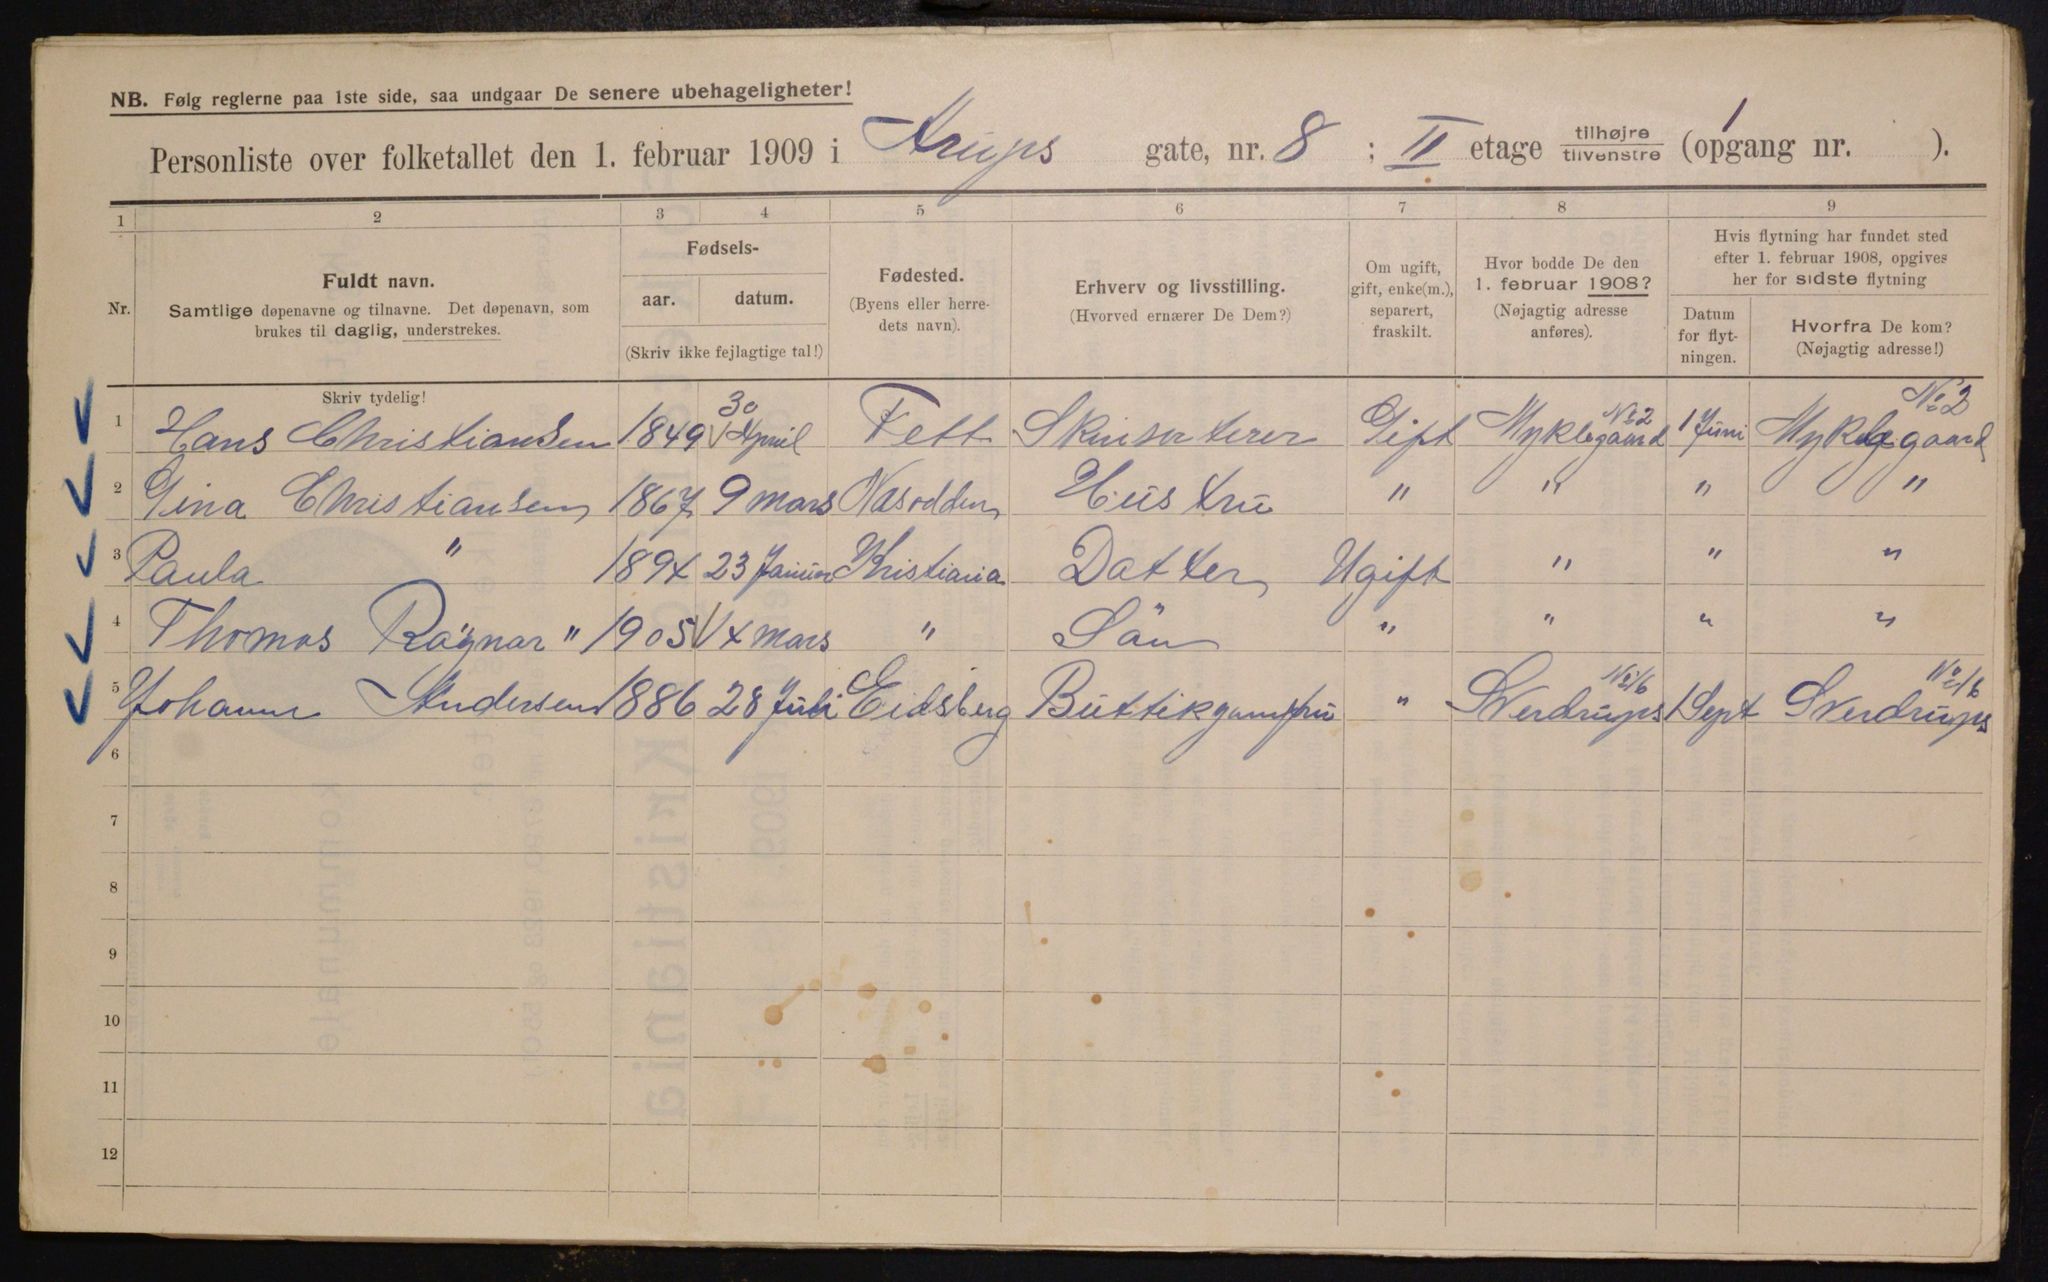 NB. Følg reglerne paa 1ste side, saa undgaar De senere ubehageligheter!
Personliste over folketallet den 1. februar 1909 i Arups gate, nr. 8 ; II etage tilhøjre / tilvenstre (opgang nr. 1 ).
1 2 3 4 5 6 7 8 9
Nr.
Fuldt navn.
Samtlige døpenavne og tilnavne. Det døpenavn, som
brukes til daglig, understrekes.
Fødsels-
aar. datum.
(Skriv ikke fejlagtige tal!)
Fødested.
(Byens eller herre-
dets navn).
Erhverv og livsstilling.
(Hvorved ernærer De Dem?)
Om ugift,
gift, enke(m.),
separert,
fraskilt.
Hvor bodde De den
1. februar 1908?
(Nøjagtig adresse
anføres).
Hvis flytning har fundet sted
efter 1. februar 1908, opgives
her for sidste flytning
Datum
for flyt-
ningen.
Hvorfra De kom?
(Nøjagtig adresse!)
Skriv tydelig!
1 Hans Christiansen 1849 30 April Fett Skinsorterer Gift Myklegaard No 2 1 Juni Myklegaard No 2
2 Gina Christiansen 1867 9 mars Nasodden Hustru " " " "
3 Paula " 1894 23 Januar Kristiania Datter Ugift " " "
4 Thomas Ragnar " 1905 4 mars " Sön " " " "
5 Johanne Andersen 1886 28 Juli Eidsberg Buttikjomfru " Sverdrups No 16 1 Sept Sverdrups No 16
6
7
8
9
10
11
12